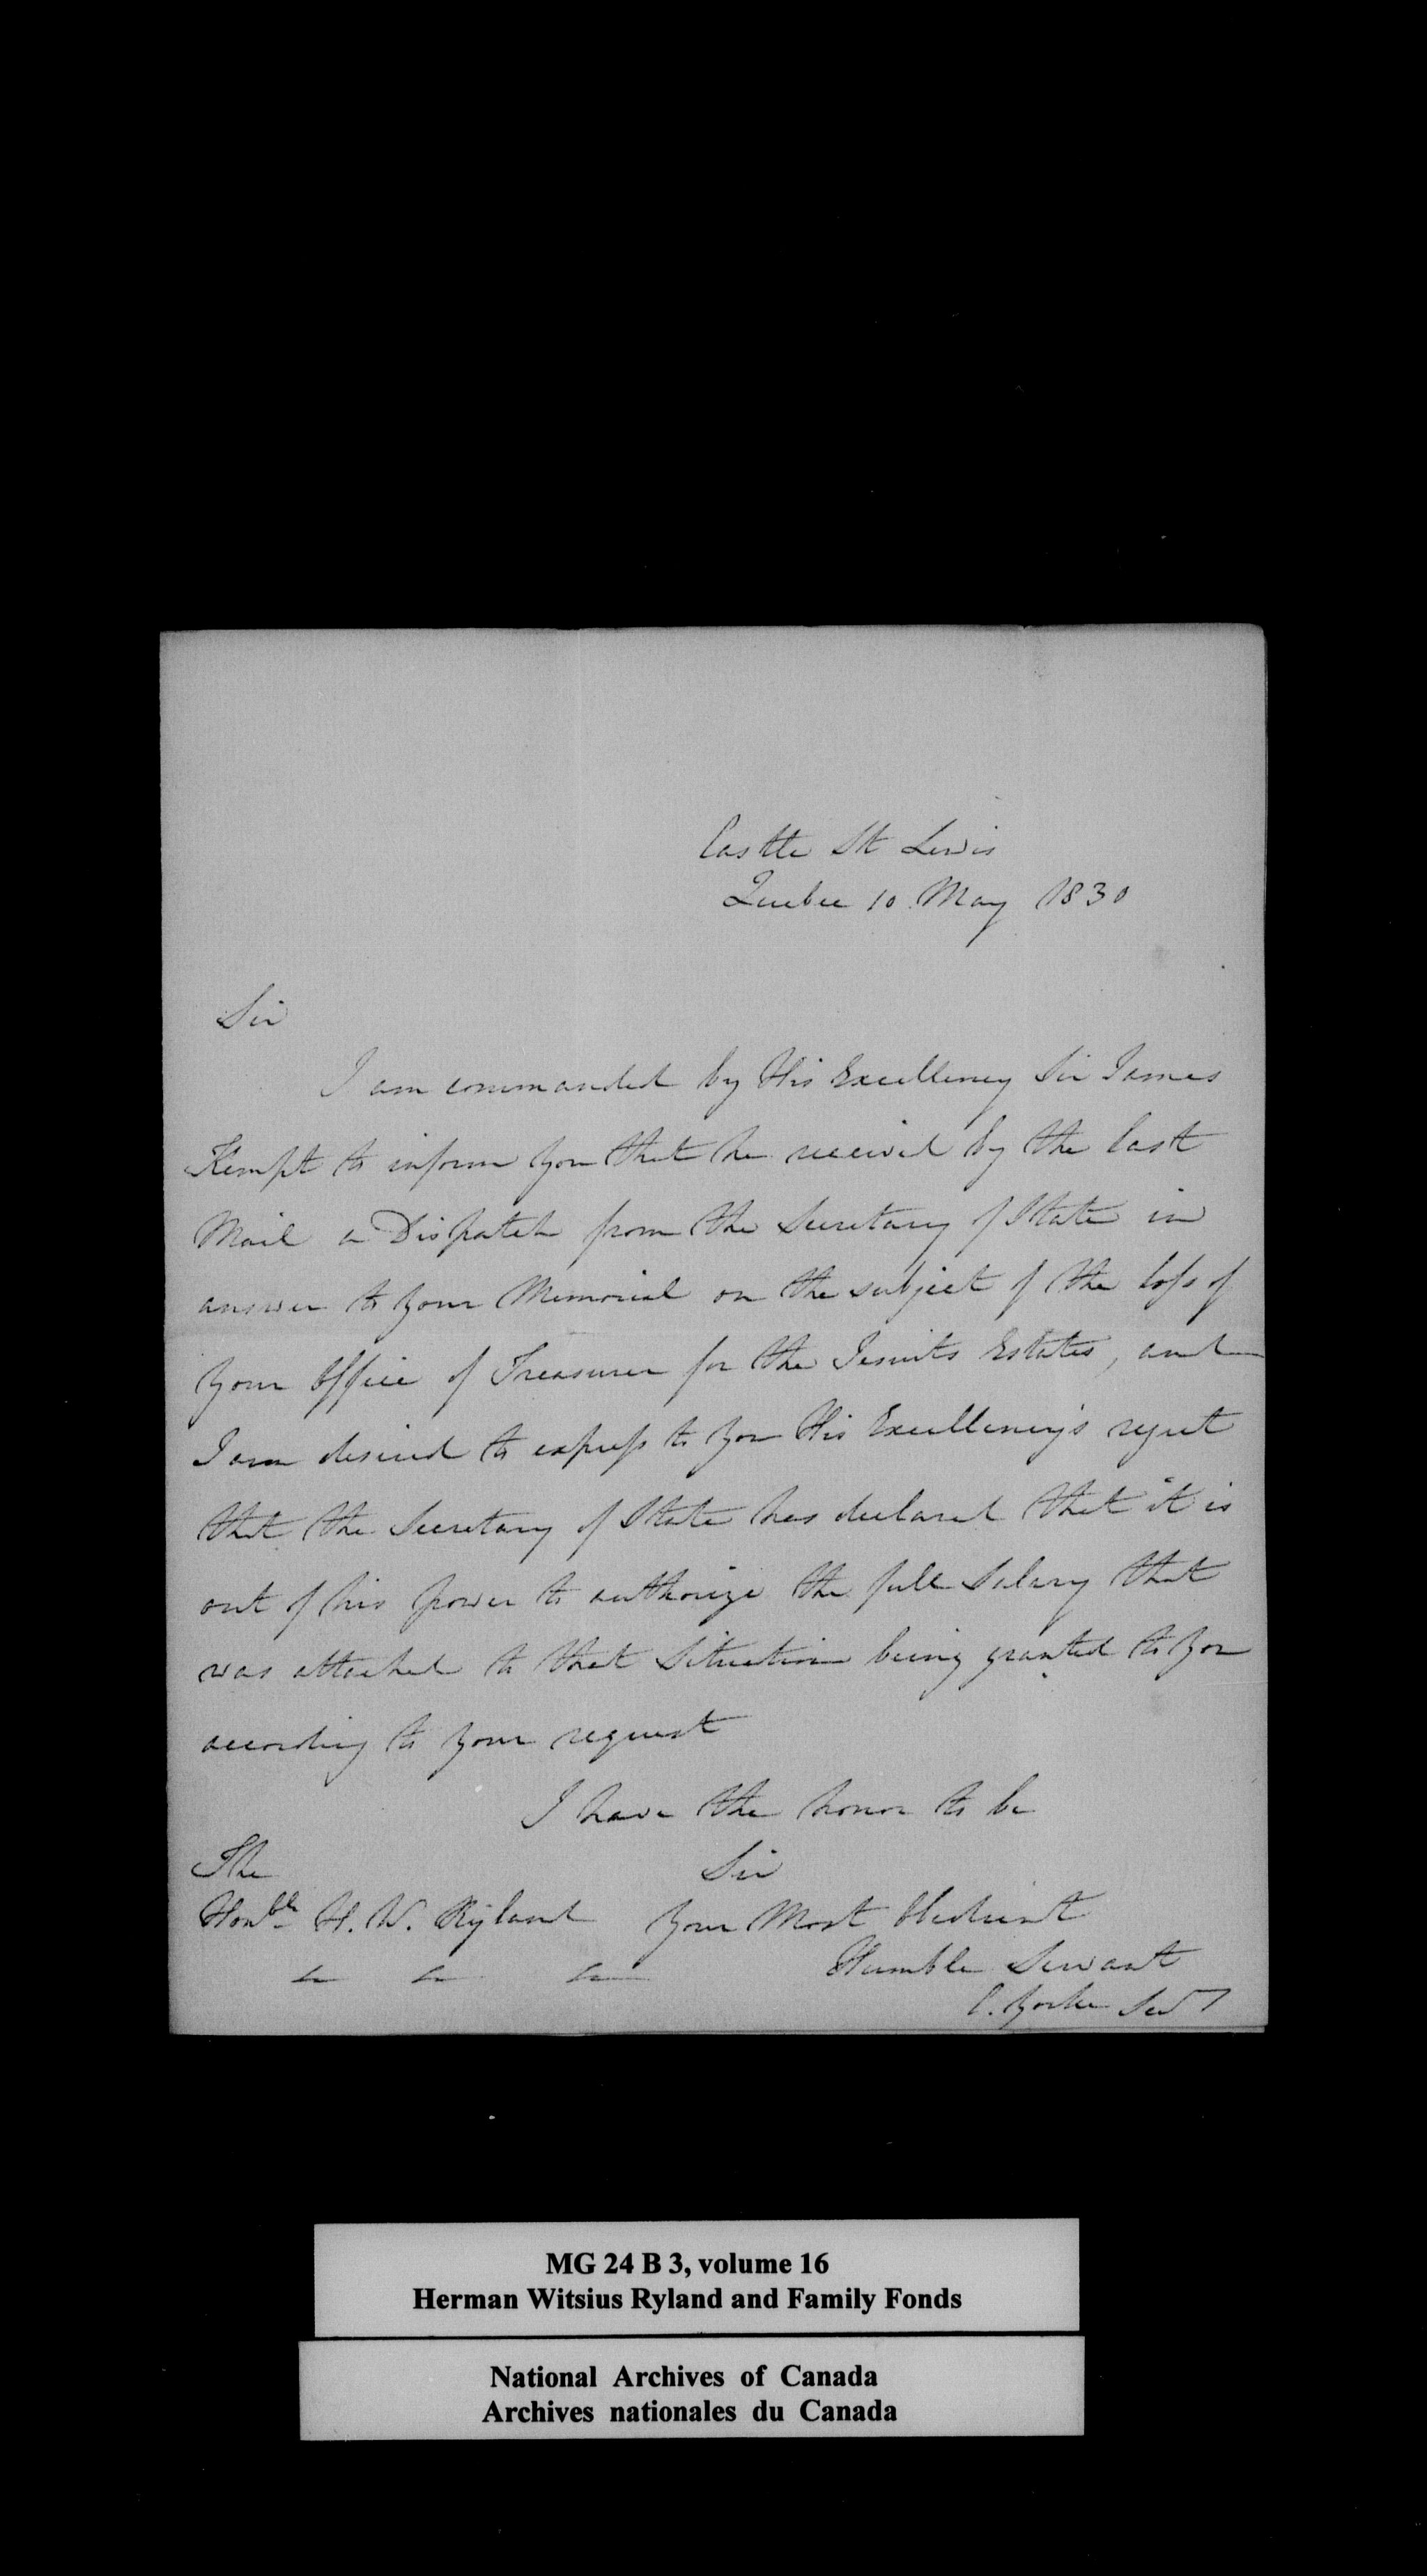 Castle St Lewis
Quebec 10 May 1830
Sir
I am commanded by His Excellency Sir James
Kempt to inform you that he received by the last
Mail a Dispatch from the Secretary of State in
answer to your Memorial on the subject of the loss of
your Office of Treasurer for the Jesuits Estates, and
I am desired to express to you His Excellency's regret
that the Secretary of State has declared that it is
out of his power to authorize the full Salary that
was attached to that Situation being granted to you
according to your request
I have the honor to be
Sir
The
Honble H. W. Ryland
your Most Obedient
Humble Servant
C. Yorke Secy
MG 24 B 3, volume 16
Herman Witsius Ryland and Family Fonds
National Archives of Canada
Archives nationales du Canada